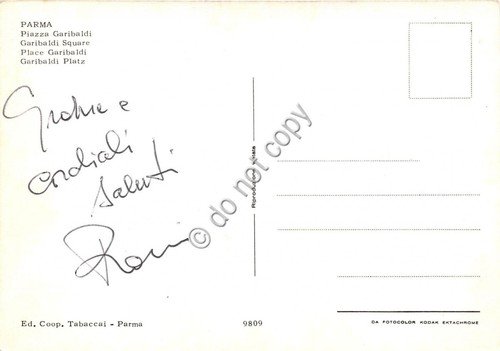 PARMA
Piazza Garibaldi
Garibaldi Square
Place Garibaldi
Garibaldi Platz
e
cordiali
saluti
© do not copy
Riproduzione
Ed. Coop. Tabaccai - Parma
9809
DA FOTOCOLOR KODAK EKTACHROME